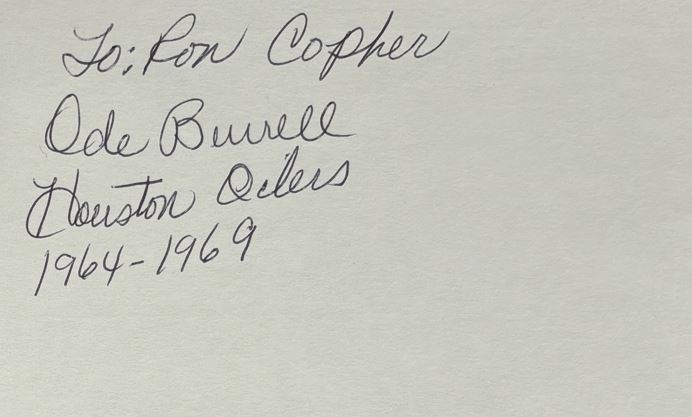 To: Ron Copher
Ode Burrell
Houston Oilers
1964-1969